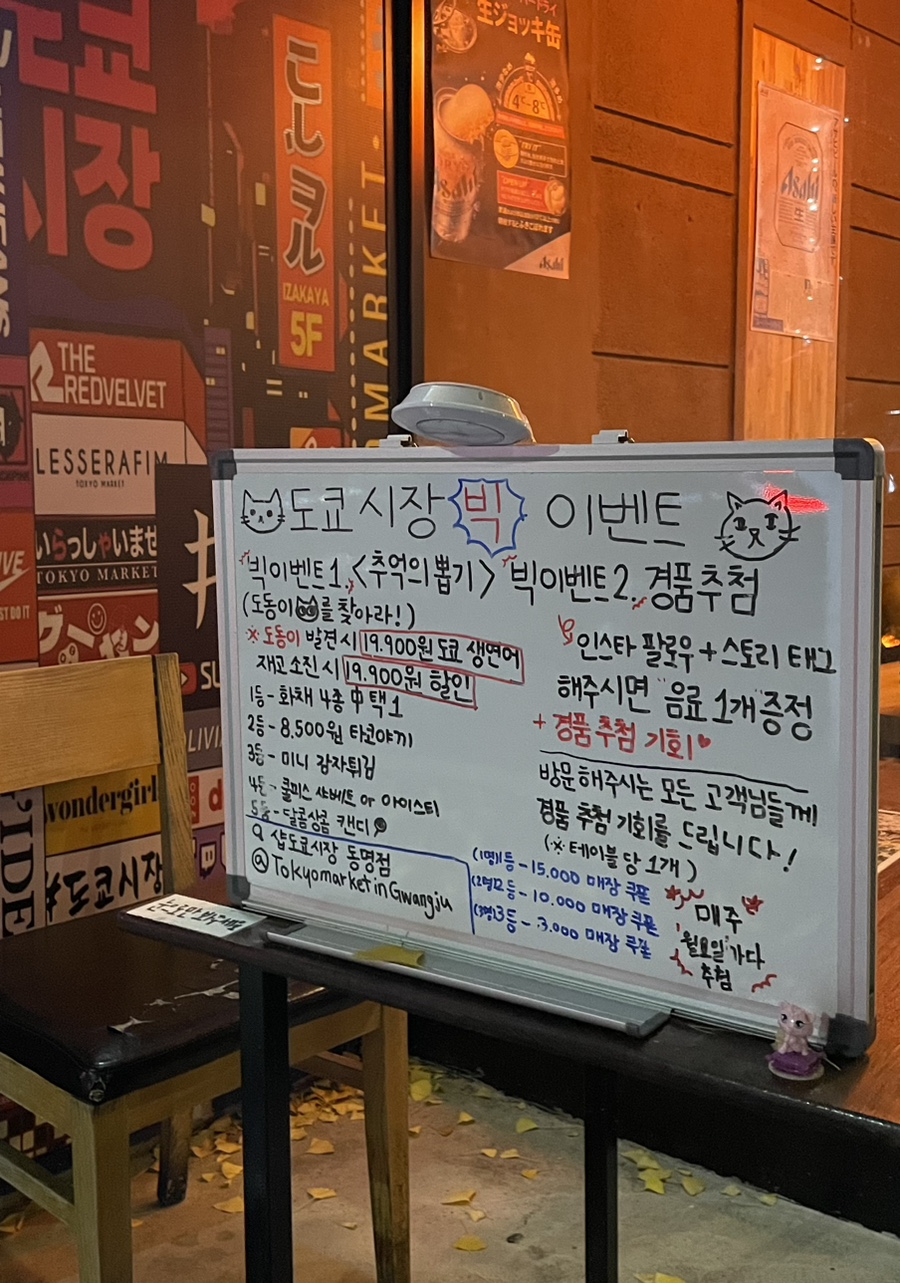 도쿄
시장
IZAKAYA
5F
MARKET
THE
REDVELVET
LESSERAFIM
TOKYO MARKET
いらっしゃいませ
TOKYO MARKET
wondergirl
#도쿄시장
生ジョッキ缶
4℃-8℃
Asahi
Asahi
生
도쿄시장 빅 이벤트
빅이벤트1. <추억의 뽑기>
(도동이를 찾아라!)
※ 도동이 발견 시 19.900원 도쿄 생연어
재고 소진 시 19.900원 할인
1등 - 화채 4종 中 택 1
2등 - 8.500원 타코야끼
3등 - 미니 감자튀김
4등 - 쿨피스 샤베트 or 아이스티
5등 - 달콤상콤 캔디
도쿄시장 동명점
@TokyomarketinGwangju
빅이벤트2. 경품추첨
인스타 팔로우 + 스토리 태그
해주시면 "음료 1개" 증정
+ 경품 추첨 기회♥
방문해주시는 모든 고객님들께
경품 추첨 기회를 드립니다!
(※ 테이블 당 1개)
(1명)1등 - 15.000 매장 쿠폰
(2명)2등 - 10.000 매장 쿠폰
(3명)3등 - 3.000 매장 쿠폰
매주
월요일마다
추첨